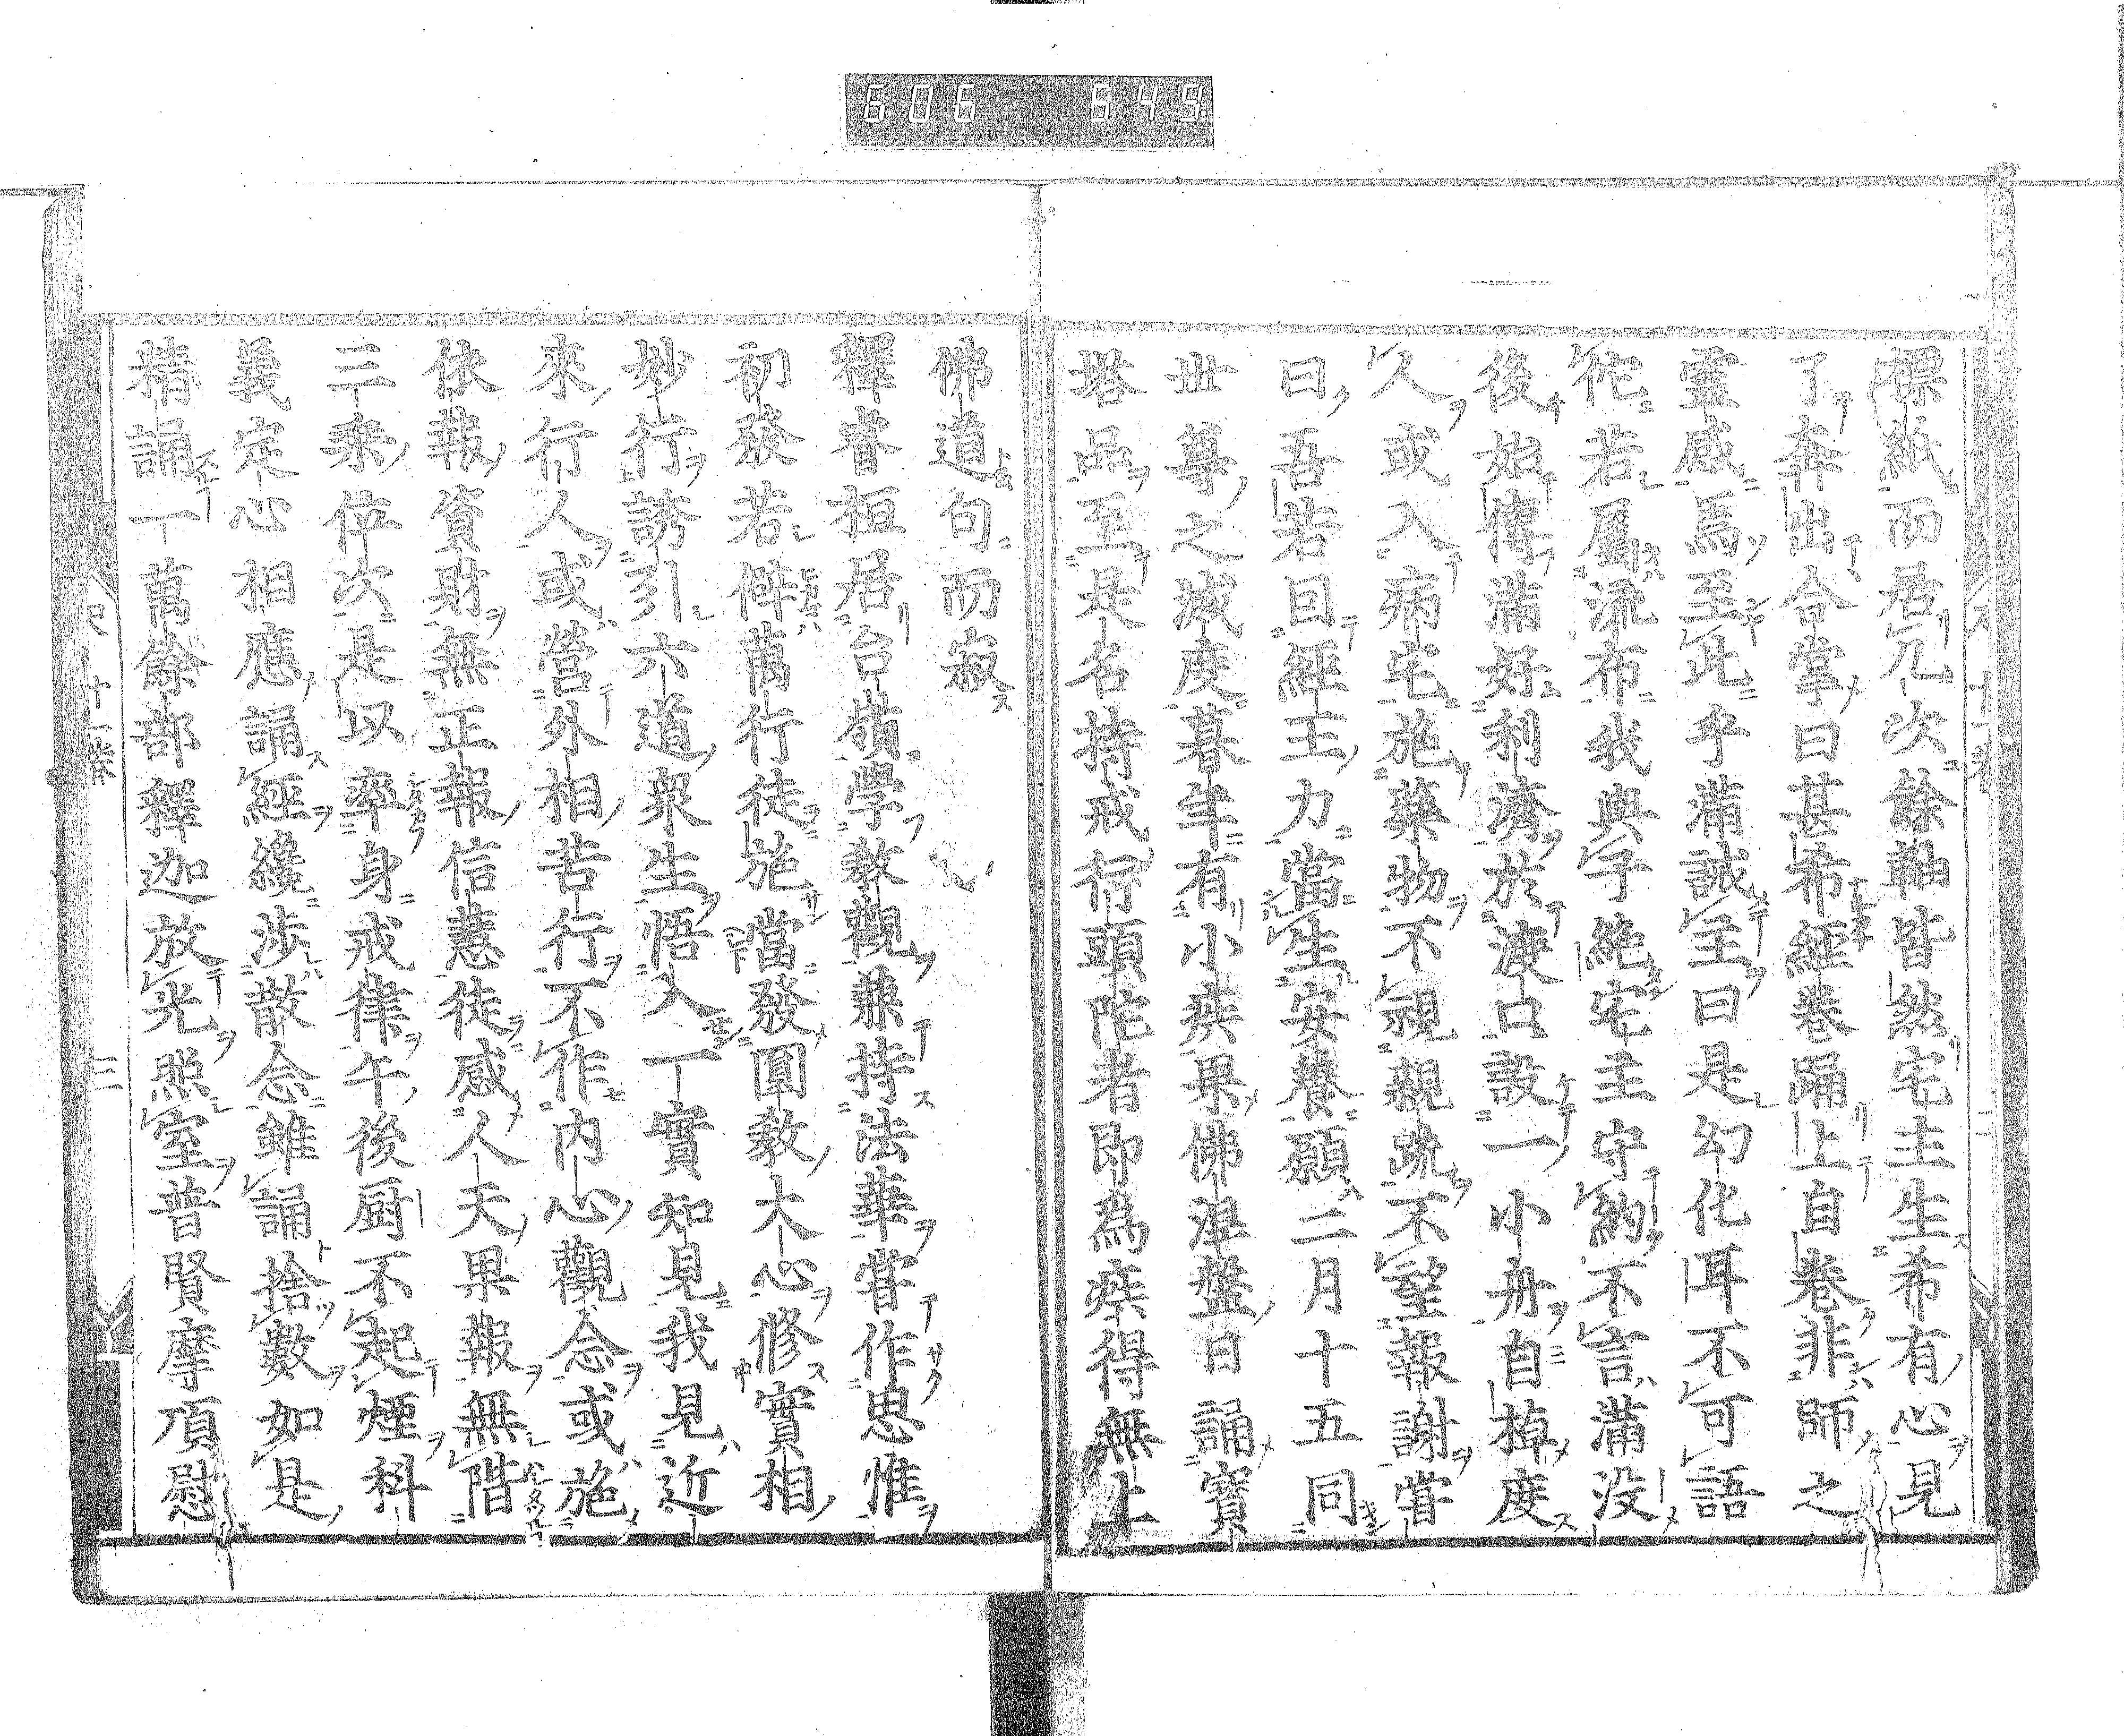 606 649
標紙而居几次餘軸皆然宅主生希有心見
了奔出合掌曰甚希經卷踊上自卷非師之
靈感焉至此乎滿誡主曰是幻化耳不可語
佗若屬流布我與子絶宅主守約不言滿没
後始傳滿好利濟於渡口設一小舟自棹度
人或入病宅施藥物不視親疏不望報謝嘗
曰吾若因經王力當生安養願二月十五同
世尊之滅度暮年有小疾果佛涅盤日誦寶
塔品至是名持戒行頭陀者即為疾得無上
佛道句而寂
釋睿桓居台嶺學教觀兼持法華嘗作思惟
初發若僻萬行徒施當發圓教大心修實相
妙行誘引六道衆生悟入一實知見我見近
來行人或營外相苦行不作内心觀念或施
依報資財無正報信慧徒感人天果報無階
三乘位次是以率身戒律午後厨不起煙科
義定心相應誦經纔涉散念雖誦捨數如是
精誦一萬餘部釋迦放光照室普賢摩頂慰
十一卷
三